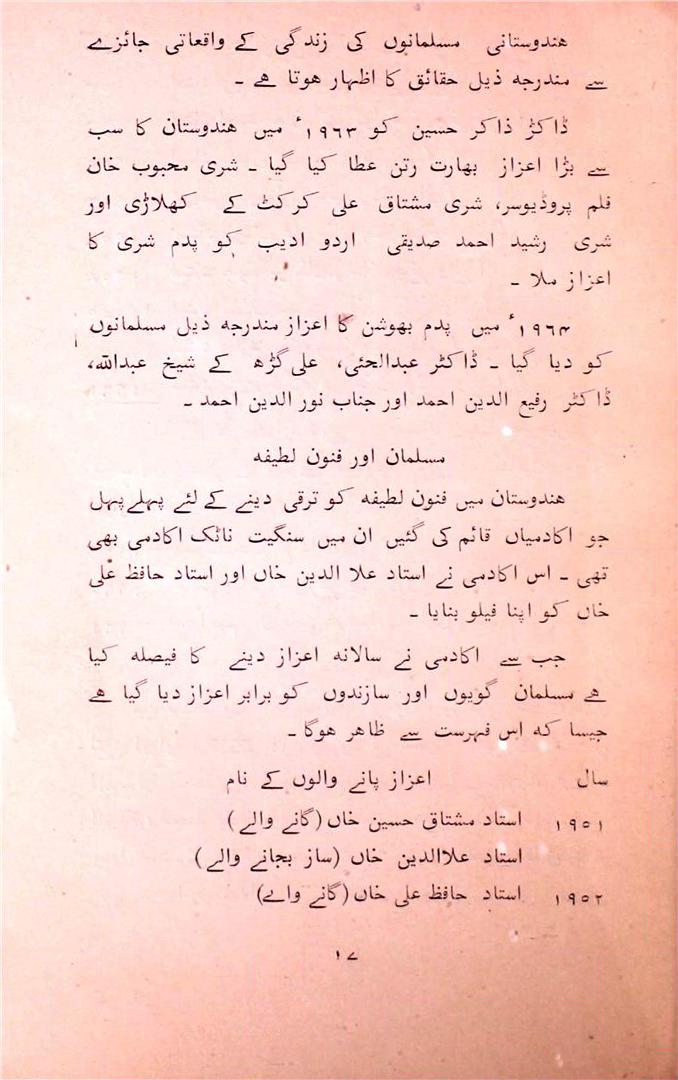 هندوستانی مسلمانوں کی زندگی کے واقعاتی جائزے
سے مندرجه ذیل حقائق کا اظہار هوتا هے ۔
ڈاکٹر ذاکر حسین کو ۱۹۶۳ء میں هندوستان کا سب
سے بڑا اعزاز بھارت رتن عطا کیا گیا ۔ شری محبوب خان
فلم پروڈیوسر، شری مشتاق علی کرکٹ کے کھلاڑی اور
شری رشید احمد صدیقی اردو ادیب کو پدم شری کا
اعزاز ملا ۔
۱۹۶۴ء میں پدم بھوشن کا اعزاز مندرجه ذیل مسلمانوں
کو دیا گیا ۔ ڈاکٹر عبدالحئی، علی گڑھ کے شیخ عبداللہ،
ڈاکٹر رفیع الدین احمد اور جناب نور الدین احمد ۔
مسلمان اور فنون لطیفه
هندوستان میں فنون لطیفه کو ترقی دینے کے لئے پہلے پہل
جو اکادمیاں قائم کی گئیں ان میں سنگیت ناٹک اکادمی بھی
تھی ۔ اس اکادمی نے استاد علا الدین خاں اور استاد حافظ علی
خاں کو اپنا فیلو بنایا ۔
جب سے اکادمی نے سالانه اعزاز دینے کا فیصله کیا
هے مسلمان گویوں اور سازندوں کو برابر اعزاز دیا گیا هے
جیسا که اس فہرست سے ظاهر هوگا ۔
سال اعزاز پانے والوں کے نام
۱۹۵۱ استاد مشتاق حسین خاں (گانے والے)
استاد علاالدین خاں (ساز بجانے والے)
۱۹۵۲ استاد حافظ علی خاں (گانے واے)
۱۷